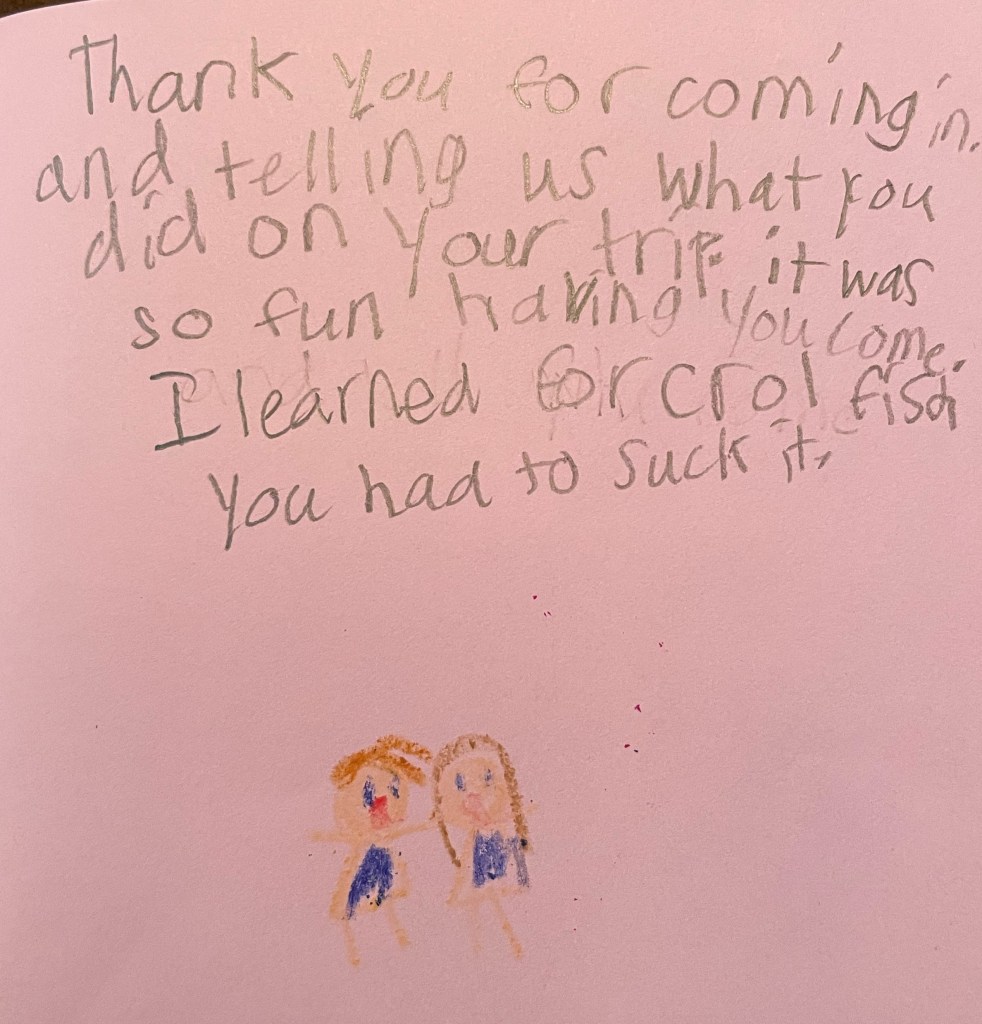 Thank you for coming in.
and telling us what you
did on your trip. it was
so fun having you come.
I learned for crol fish
you had to suck it.